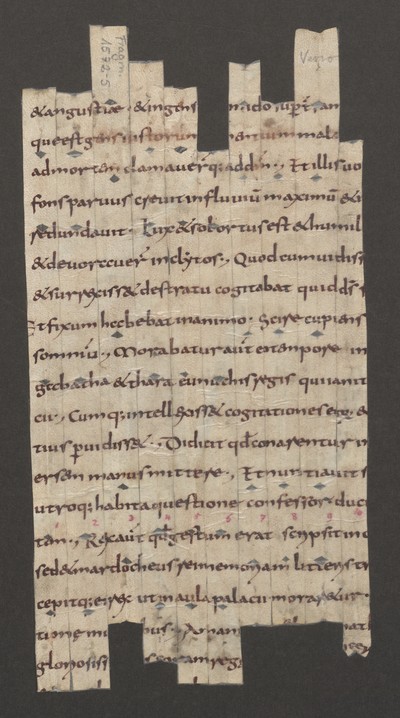 Fragm.
1572-5
Vagro
&angustiae · &ingens mido sup̄ t̄
que est gens iustorum mala
ad mortem clamauer̄q; ad dm̄ · Et illis uo
fons paruus creuit influuiū maximū &i
redundauit · Lux & sol ortus est & humil
& deuorauer̄ inclytos · Quod cum uidiss
& surrexiss& destratu cogitabat quid ds̄
Et fixum habebat in animo · Scire cupiens
somniū · Morabatur aūt eo tempore in
bagatha & thara eunuchis regis qui ianit
cū · Cumq; intellexiss& cogitationes eorū &
tius puidiss& · Didicit qd̄ conarentur in
ersen manus mittere · Et nuntiauit s
utroq; habita questione confessor duci
tem · Rex aūt qd̄ gestum erat scripsit in c
sed & mardocheus rei memoriam litteris tr
cepitq; ei rex ut in aula palacii morar&ur
time mu bus · Aman
gloriosis eram reg